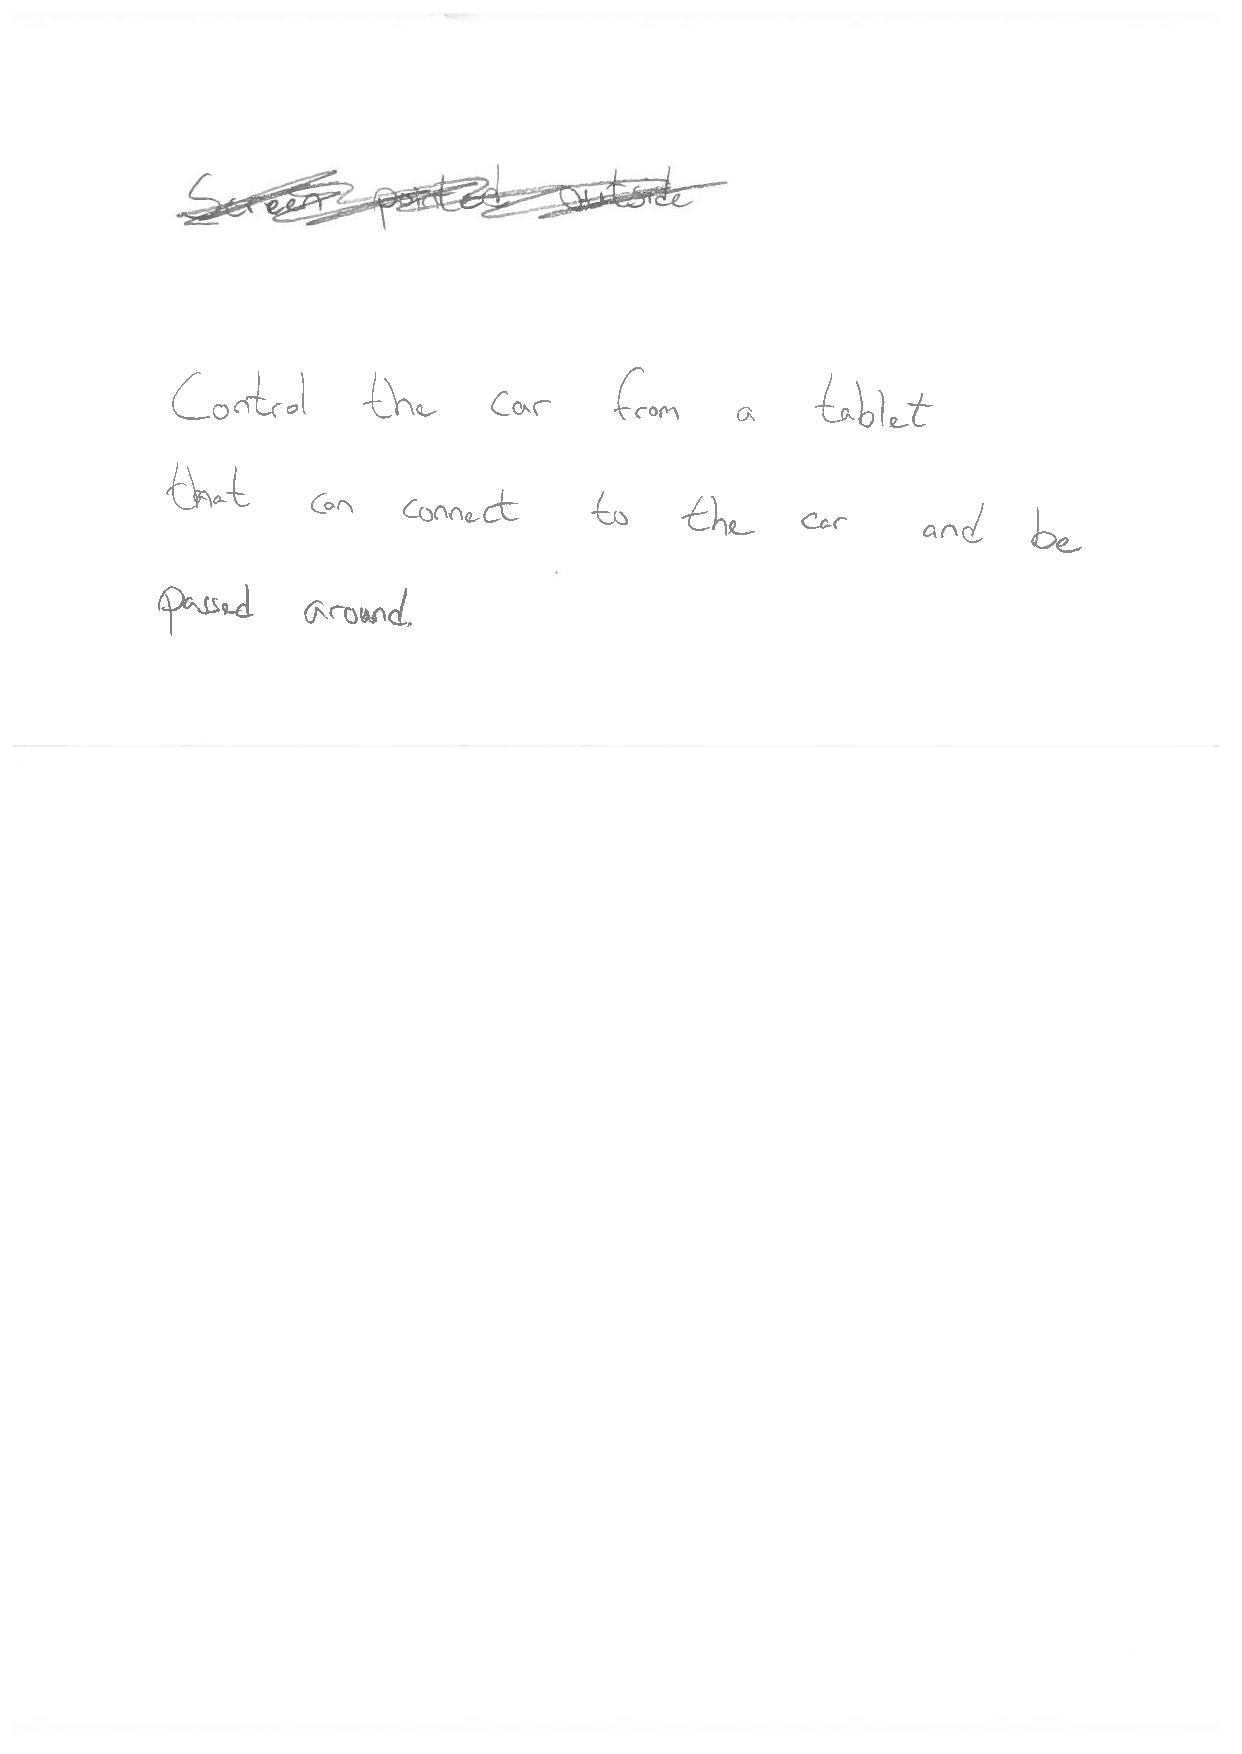 Screen pointed outside
Control the car from a tablet
that can connect to the car and be
passed around.